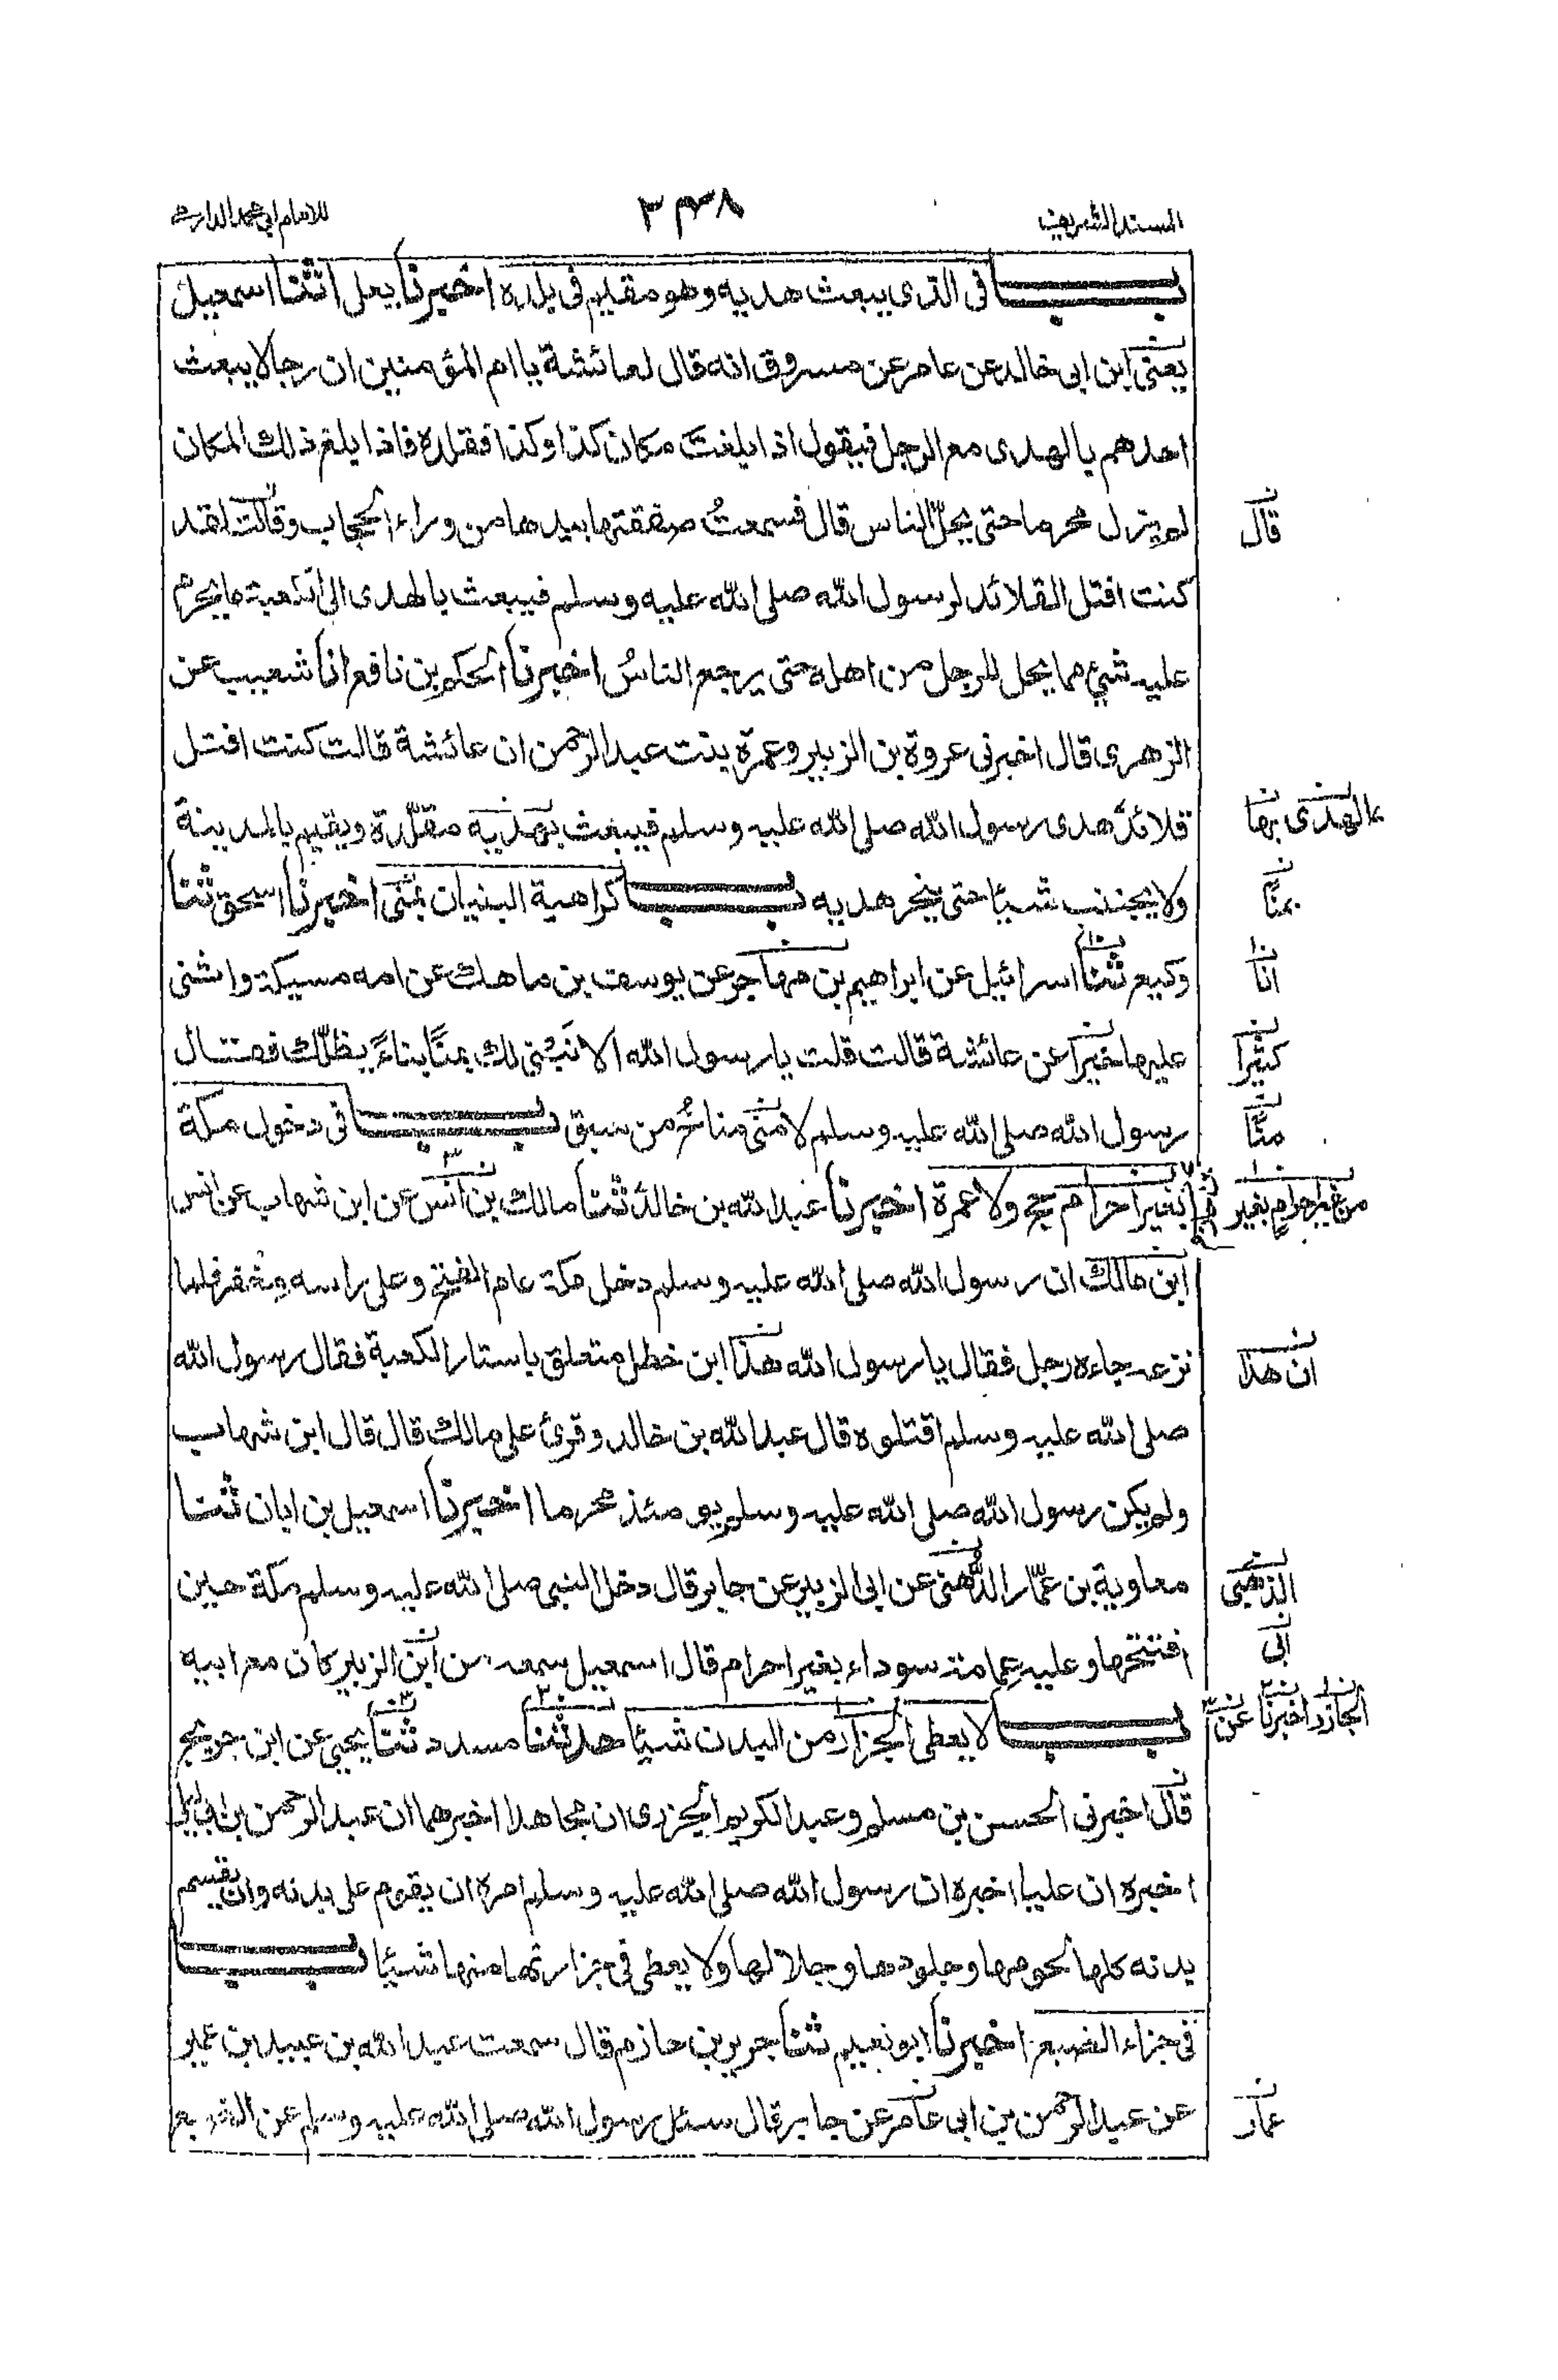 المسند الشريف
٢٣٨
للامام ابي محمد الدارمي
باب في الذى يبعث هديه وهو مقيم فى بلده اخبرنا يعلى ثنا اسمعيل
يعنى ابن ابى خالد عن عامر عن مسروق انه قال لعائشة يا ام المؤمنين ان رجالا يبعث
احدهم بالهدى مع الرجل فيقول اذا بلغت مكان كذا وكذا فقلده فاذا بلغ ذلك المكان
لم يزل محرما حتى يحلّ الناس قال فسمعتُ صفقتها بيدها من وراء الحجاب وقالت لقد
قال
كنت افتل القلائد لرسول الله صلى الله عليه وسلم فيبعث بالهدى الى الكعبة ما يحرم
عليه شيئ مما يحل للرجل من اهله حتى يرجع الناسُ اخبرنا الحكم بن نافع انا شعيب عن
الزهرى قال اخبرنى عروة بن الزبير وعمرة بنت عبد الرحمن ان عائشة قالت كنت افتل
قلائدَ هدى رسول الله صلى الله عليه وسلم فيبعث بهديه مقلّدة ويقيم بالمدينة
بالهدى بها
ولا يجتنب شيئا حتى ينحر هديه باب كراهية البنيان بمنى اخبرنا اسحق ثنا
بمنًا
وكيع ثنا اسرائيل عن ابراهيم بن مهاجر عن يوسف بن ماهك عن امه مسيكة واثنى
انا
عليها خيرا عن عائشة قالت قلت يا رسول الله الا نَبْنى لك بمنًا بناءً يظلّك فقال
كثيرا
رسول الله صلى الله عليه وسلم لا منى مناخُ من سبق باب فى دخول مكة
منًا
بغير احرام حج ولا عمرة اخبرنا عبد الله بن خالد ثنا مالك بن انس عن ابن شهاب عن انس
من غير احرام بغير
ابن مالك ان رسول الله صلى الله عليه وسلم دخل مكة عام الفتح وعلى راسه مغفر فلما
نزعه جاءه رجل فقال يا رسول الله هذا ابن خطل متعلق باستار الكعبة فقال رسول الله
ان هذا
صلى الله عليه وسلم اقتلوه قال عبد الله بن خالد وقرئ على مالك قال قال ابن شهاب
ولم يكن رسول الله صلى الله عليه وسلم يومئذ محرما اخبرنا اسمعيل بن ابان ثنا
معاوية بن عمّار الدُّهنى عن ابى الزبير عن جابر قال دخل النبى صلى الله عليه وسلم مكة حين
الذهبى
افتتحها وعليه عمامة سوداء بغير احرام قال اسمعيل سمعه من ابن الزبير كان مع ابيه
ابى
باب لا يعطى الجزار من البدن شيئا حدثنا مسدد ثنا يحيى عن ابن جريج
الجازر اخبرنا عن
قال اخبرنى الحسن بن مسلم وعبد الكريم الجزرى ان مجاهدا اخبرهما ان عبد الرحمن بن ابى ليلى
اخبره ان عليا اخبره ان رسول الله صلى الله عليه وسلم امره ان يقوم على بدنه وان يقسم
بدنه كلها لحومها وجلودها وجلالها ولا يعطى فى جزارتها منها شيئا باب
فى جزاء الضبع اخبرنا ابو نعيم ثنا جرير بن حازم قال سمعت عبد الله بن عبيد بن عمير
عن عبد الرحمن بن ابى عامر عن جابر قال سئل رسول الله صلى الله عليه وسلم عن الضبع
عمار